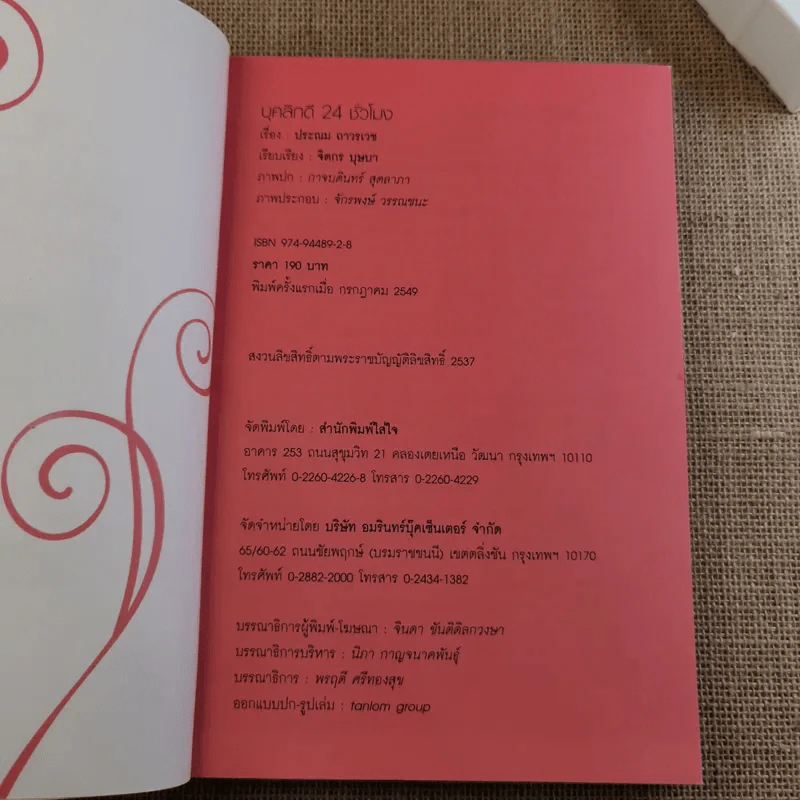 บุคลิกดี 24 ชั่วโมง
เรื่อง : ประณม ถาวรเวช
เรียบเรียง : จิตกร บุษบา
ภาพปก : กาจบดินทร์ สุดลาภา
ภาพประกอบ : จักรพงษ์ วรรณชนะ
ISBN 974-94489-2-8
ราคา 190 บาท
พิมพ์ครั้งแรกเมื่อ กรกฎาคม 2549
สงวนลิขสิทธิ์ตามพระราชบัญญัติลิขสิทธิ์ 2537
จัดพิมพ์โดย : สำนักพิมพ์ใส่ใจ
อาคาร 253 ถนนสุขุมวิท 21 คลองเตยเหนือ วัฒนา กรุงเทพฯ 10110
โทรศัพท์ 0-2260-4226-8 โทรสาร 0-2260-4229
จัดจำหน่ายโดย บริษัท อมรินทร์บุ๊คเซ็นเตอร์ จำกัด
65/60-62 ถนนชัยพฤกษ์ (บรมราชชนนี) เขตตลิ่งชัน กรุงเทพฯ 10170
โทรศัพท์ 0-2882-2000 โทรสาร 0-2434-1382
บรรณาธิการผู้พิมพ์-โฆษณา : จินดา ขันติดิลกวงษา
บรรณาธิการบริหาร : นิภา กาญจนาคพันธุ์
บรรณาธิการ : พรฤดี ศรีทองสุข
ออกแบบปก-รูปเล่ม : tanlom group